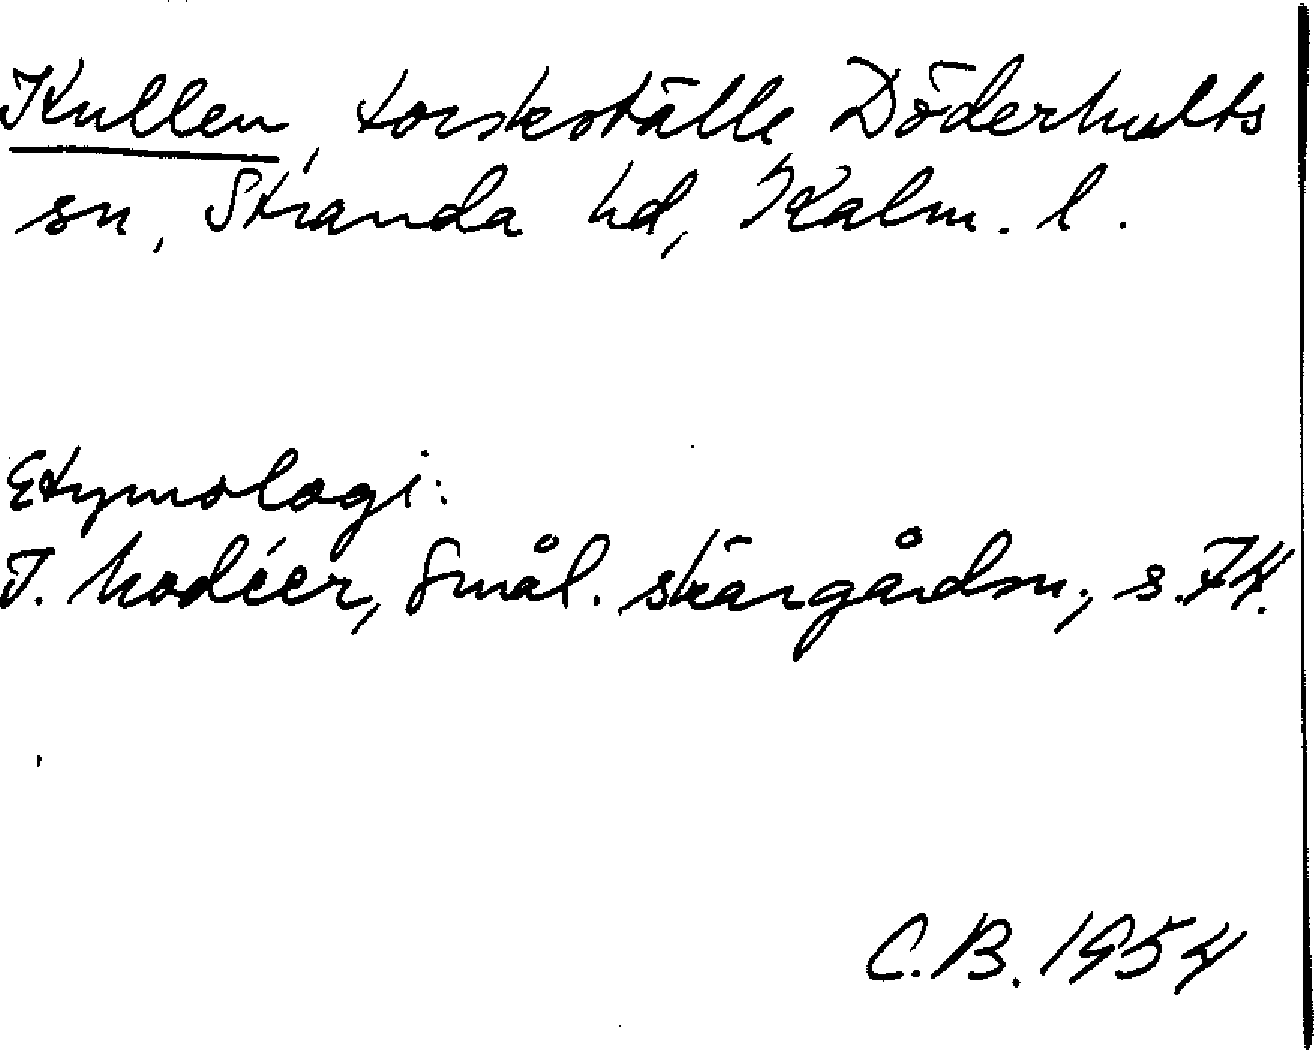 Kullen, torskställe Döderhults
sn, Stranda hd, Kalm. l.
Etymologi:
I. Modéer, Smål. skärgårdsn., s. 74.
C.B. 1954